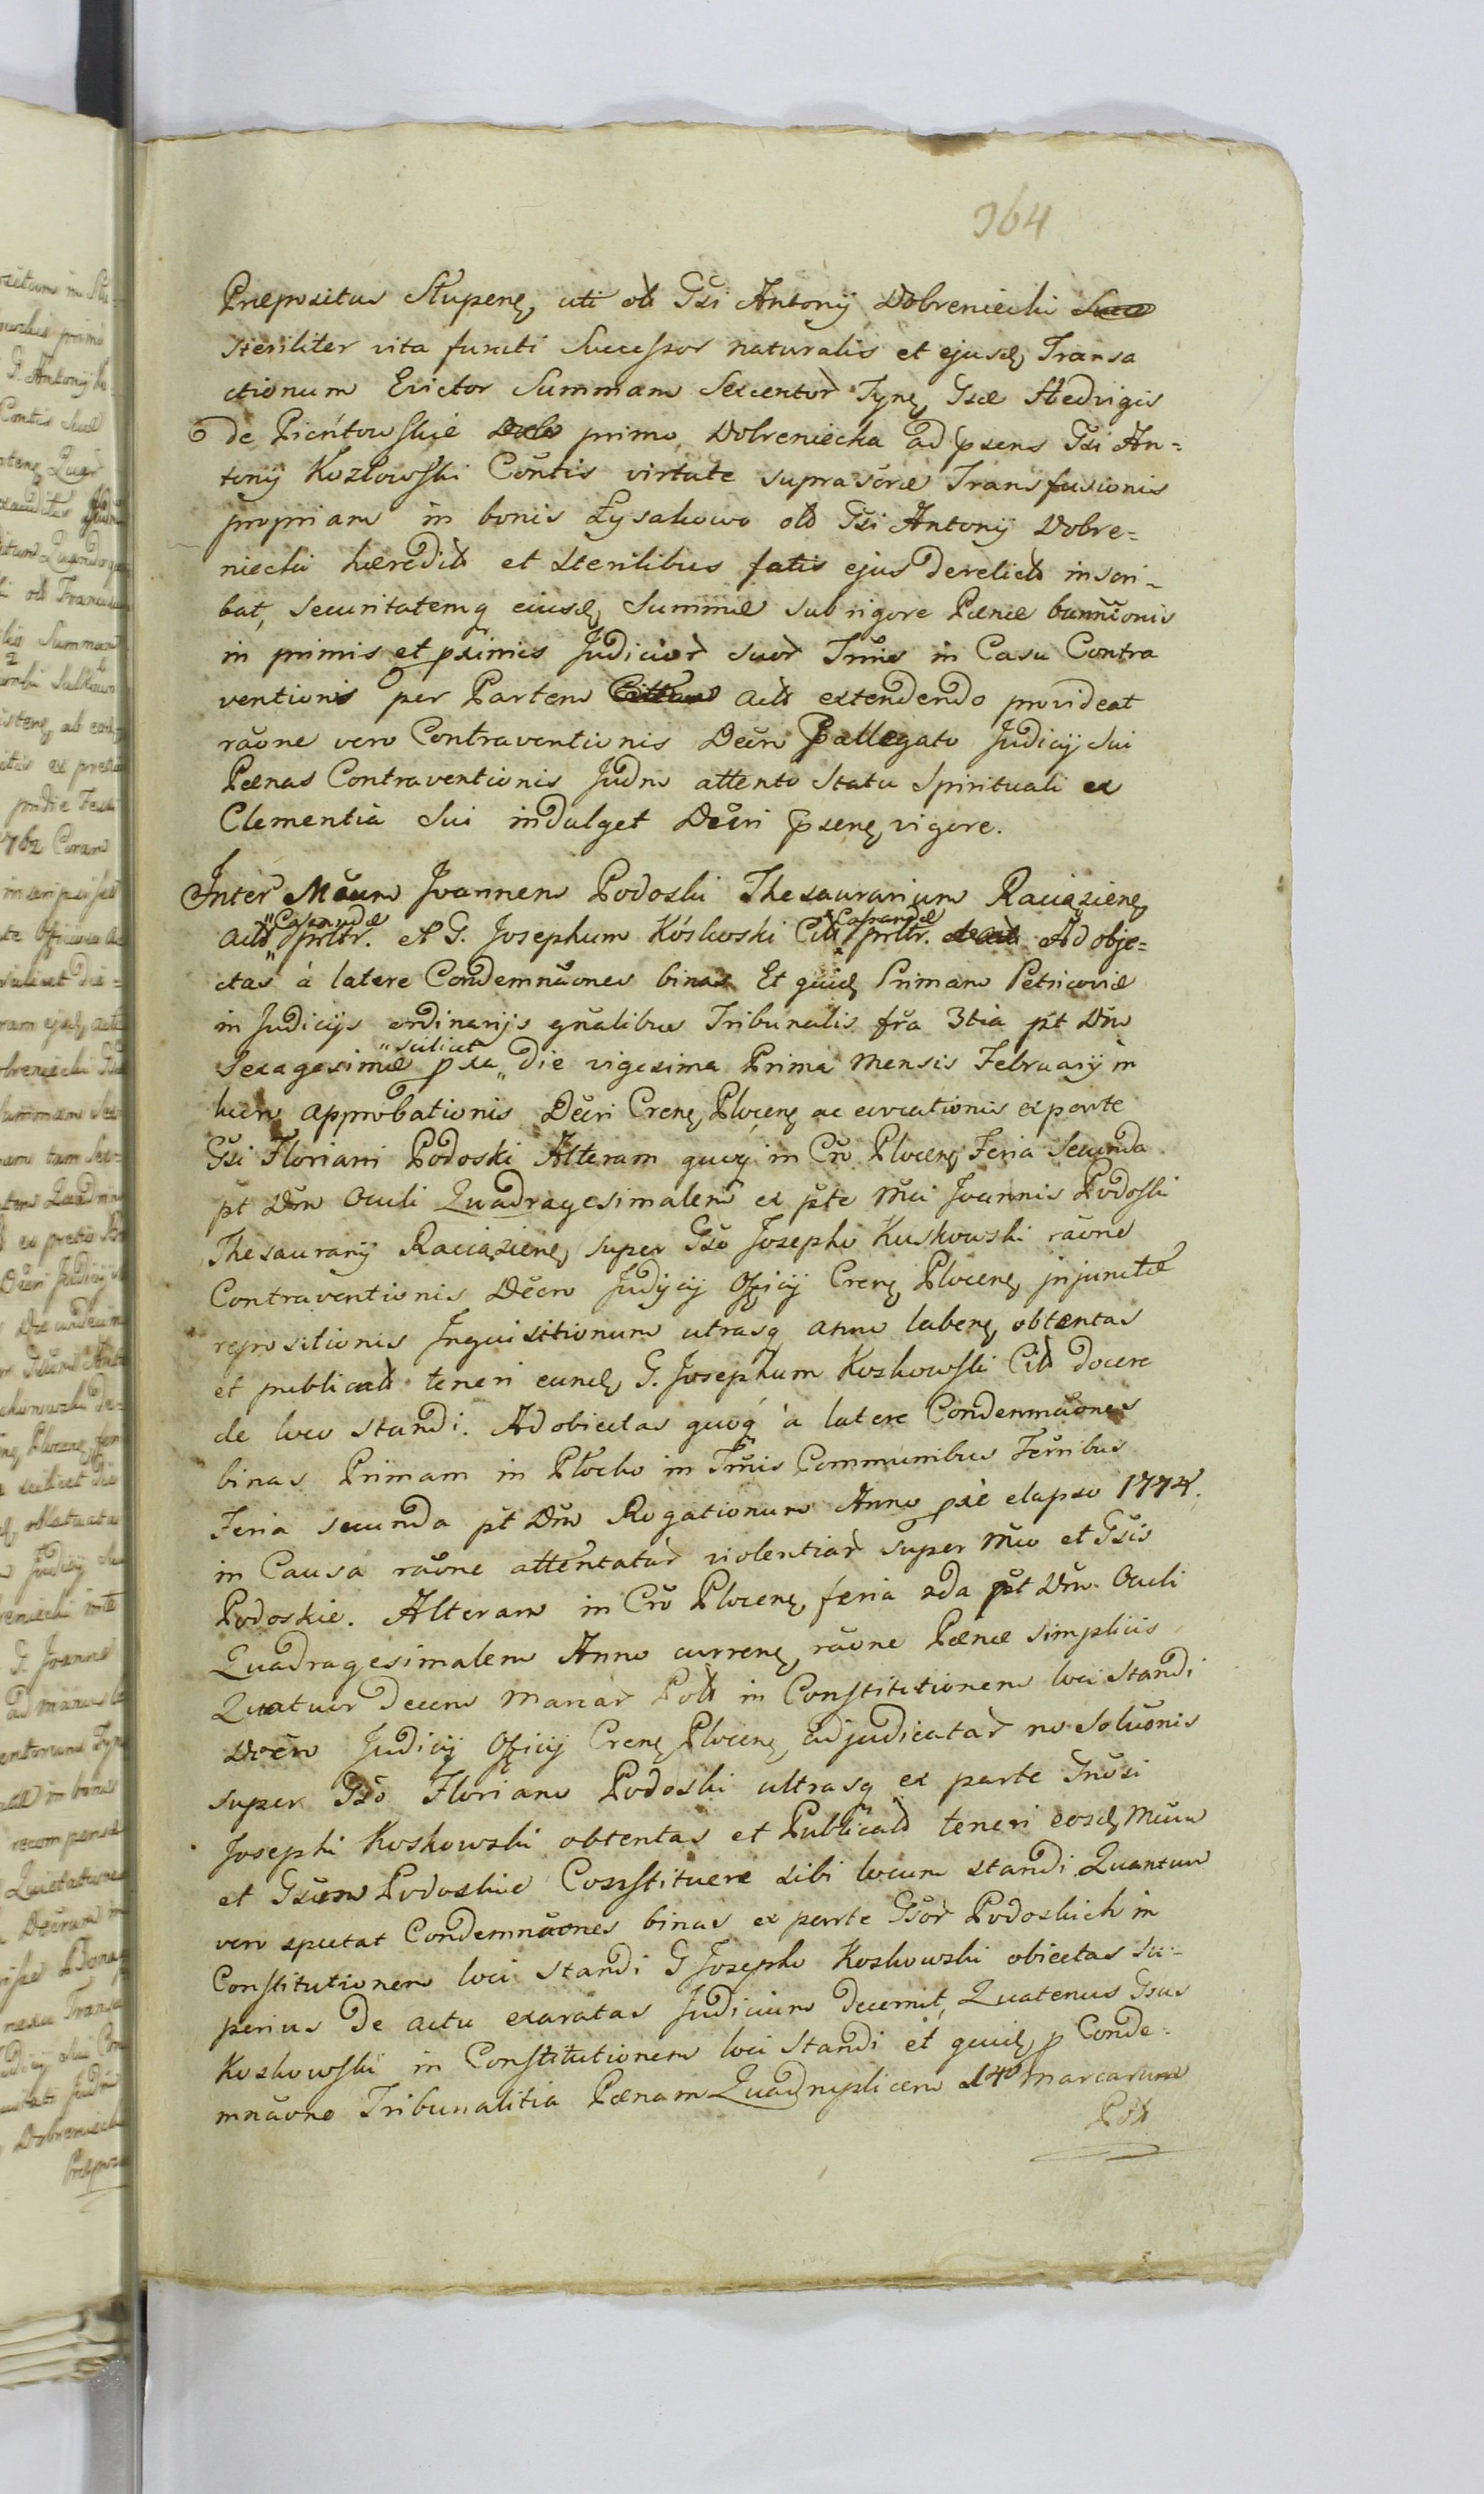 364
Præpositus Słupen, uti olĩ Gsi Antonij Dobreniecki
steriliter vita functi Successor naturalis et ejusd Transa
ctionum Evictor Summam Sexcentor̃ Fyn Gsæ Hedvigis
de Pieńtowskie primo Dobreniecka ad p̃sens Gsi An=
tonij Kozłowski Cõntis virtute suprascræ Transfusionis
propriam in bonis Łysakowo olĩ Gsi Antonij Dobre=
niecki hæredit̃ et sterilibus fatis ejus derelict̃ inscri=
bat, securitatemq eiusd Summæ sub rigore Pænæ bannionis
in primis et pximis Judicior̃ suor̃ Tr̃nis in Casu Contra
ventionis per Partem act̃ extendendo provideat
rãone vero Contraventionis Decr̃o p̃allegato Judicij sui
Pænas Contraventionis Judm attento Statu Spirituali ex
Clementia Sui indulget Decr̃i p̃sen vigore.
Inter Mc̃um Joannem Podoski Thesaurarium Raciązien
"Casandæ Casandæ
act̃ " prltr. et G. Josephum Kóskowski Cit̃ prltr. Ad obje=
ctas à latere Condemnãones binas Et quid Primam Petricoviæ
in Judicijs ordinarijs gñalibus Tribunalis fr̃a 3tia pt Dñm
"scilicet
Sexagesimæ pxa " die vigesima Prima Mensis February in
luem approbationis Decr̃i Cren Plocen ac evocationis ex parte
Gsi Floriani Podoski Alteram quoq in Crõ Plocen Feria Secunda
pt Dñm Oculi Quadragesimalem ex pte Mc̃i Joannis Podoski
Thesaurarij Raciązien super Gsõ Josepho Kuskowski rãone
Contraventionis Decr̃o Judicij Officij Cren Plocen injunctæ
repositionis Inquisitionum utrasq anno laben obtentas
et publicat̃ teneri eund G. Josephum Koskowski Cit̃ docere
de loco standi. Ad obiectas quoq à latere Condemnãones
binas Primam in Płocko in Tr̃nis Communibus Terr̃ibus
Feria secunda pt Dñm Rogationum Anno pxe elapso 1774.
in Causa rãone attentatar̃ violentiar̃ super Mc̃o et Gsis
Podoskie. Alteram in Crõ Plocen feria 2da pt Dñm Oculi
Quadragesimalem Anno curren, rãone Pænæ simplicis
Quatuor Decem Marcar̃ Pol̃ in Constitutionem loci Standi
Decr̃o Judicij Officij Cren Plocen adjudicatar̃ no solũonis
super Gsõ Floriano Podoski ultrasq ex parte Gnõsi
Josephi Koskowski obtentas et Publicat̃ teneri eosd Mc̃um
et Gsum Podoskie Constituere sibi locum standi Quantum
vero spectat Condemnãones binas ex parte Gsor̃ Podoskich in
Constitutionem loci Standi G Josepho Koskowski obiectas su=
perius de actu exaratas Judicium decernit, Quatenus Gsus
Koskowski in Constitutionem loci Standi et quid p Conde=
mnãone Tribunalitia Pænam Quadruplicem 14 marcarum
Pol̃